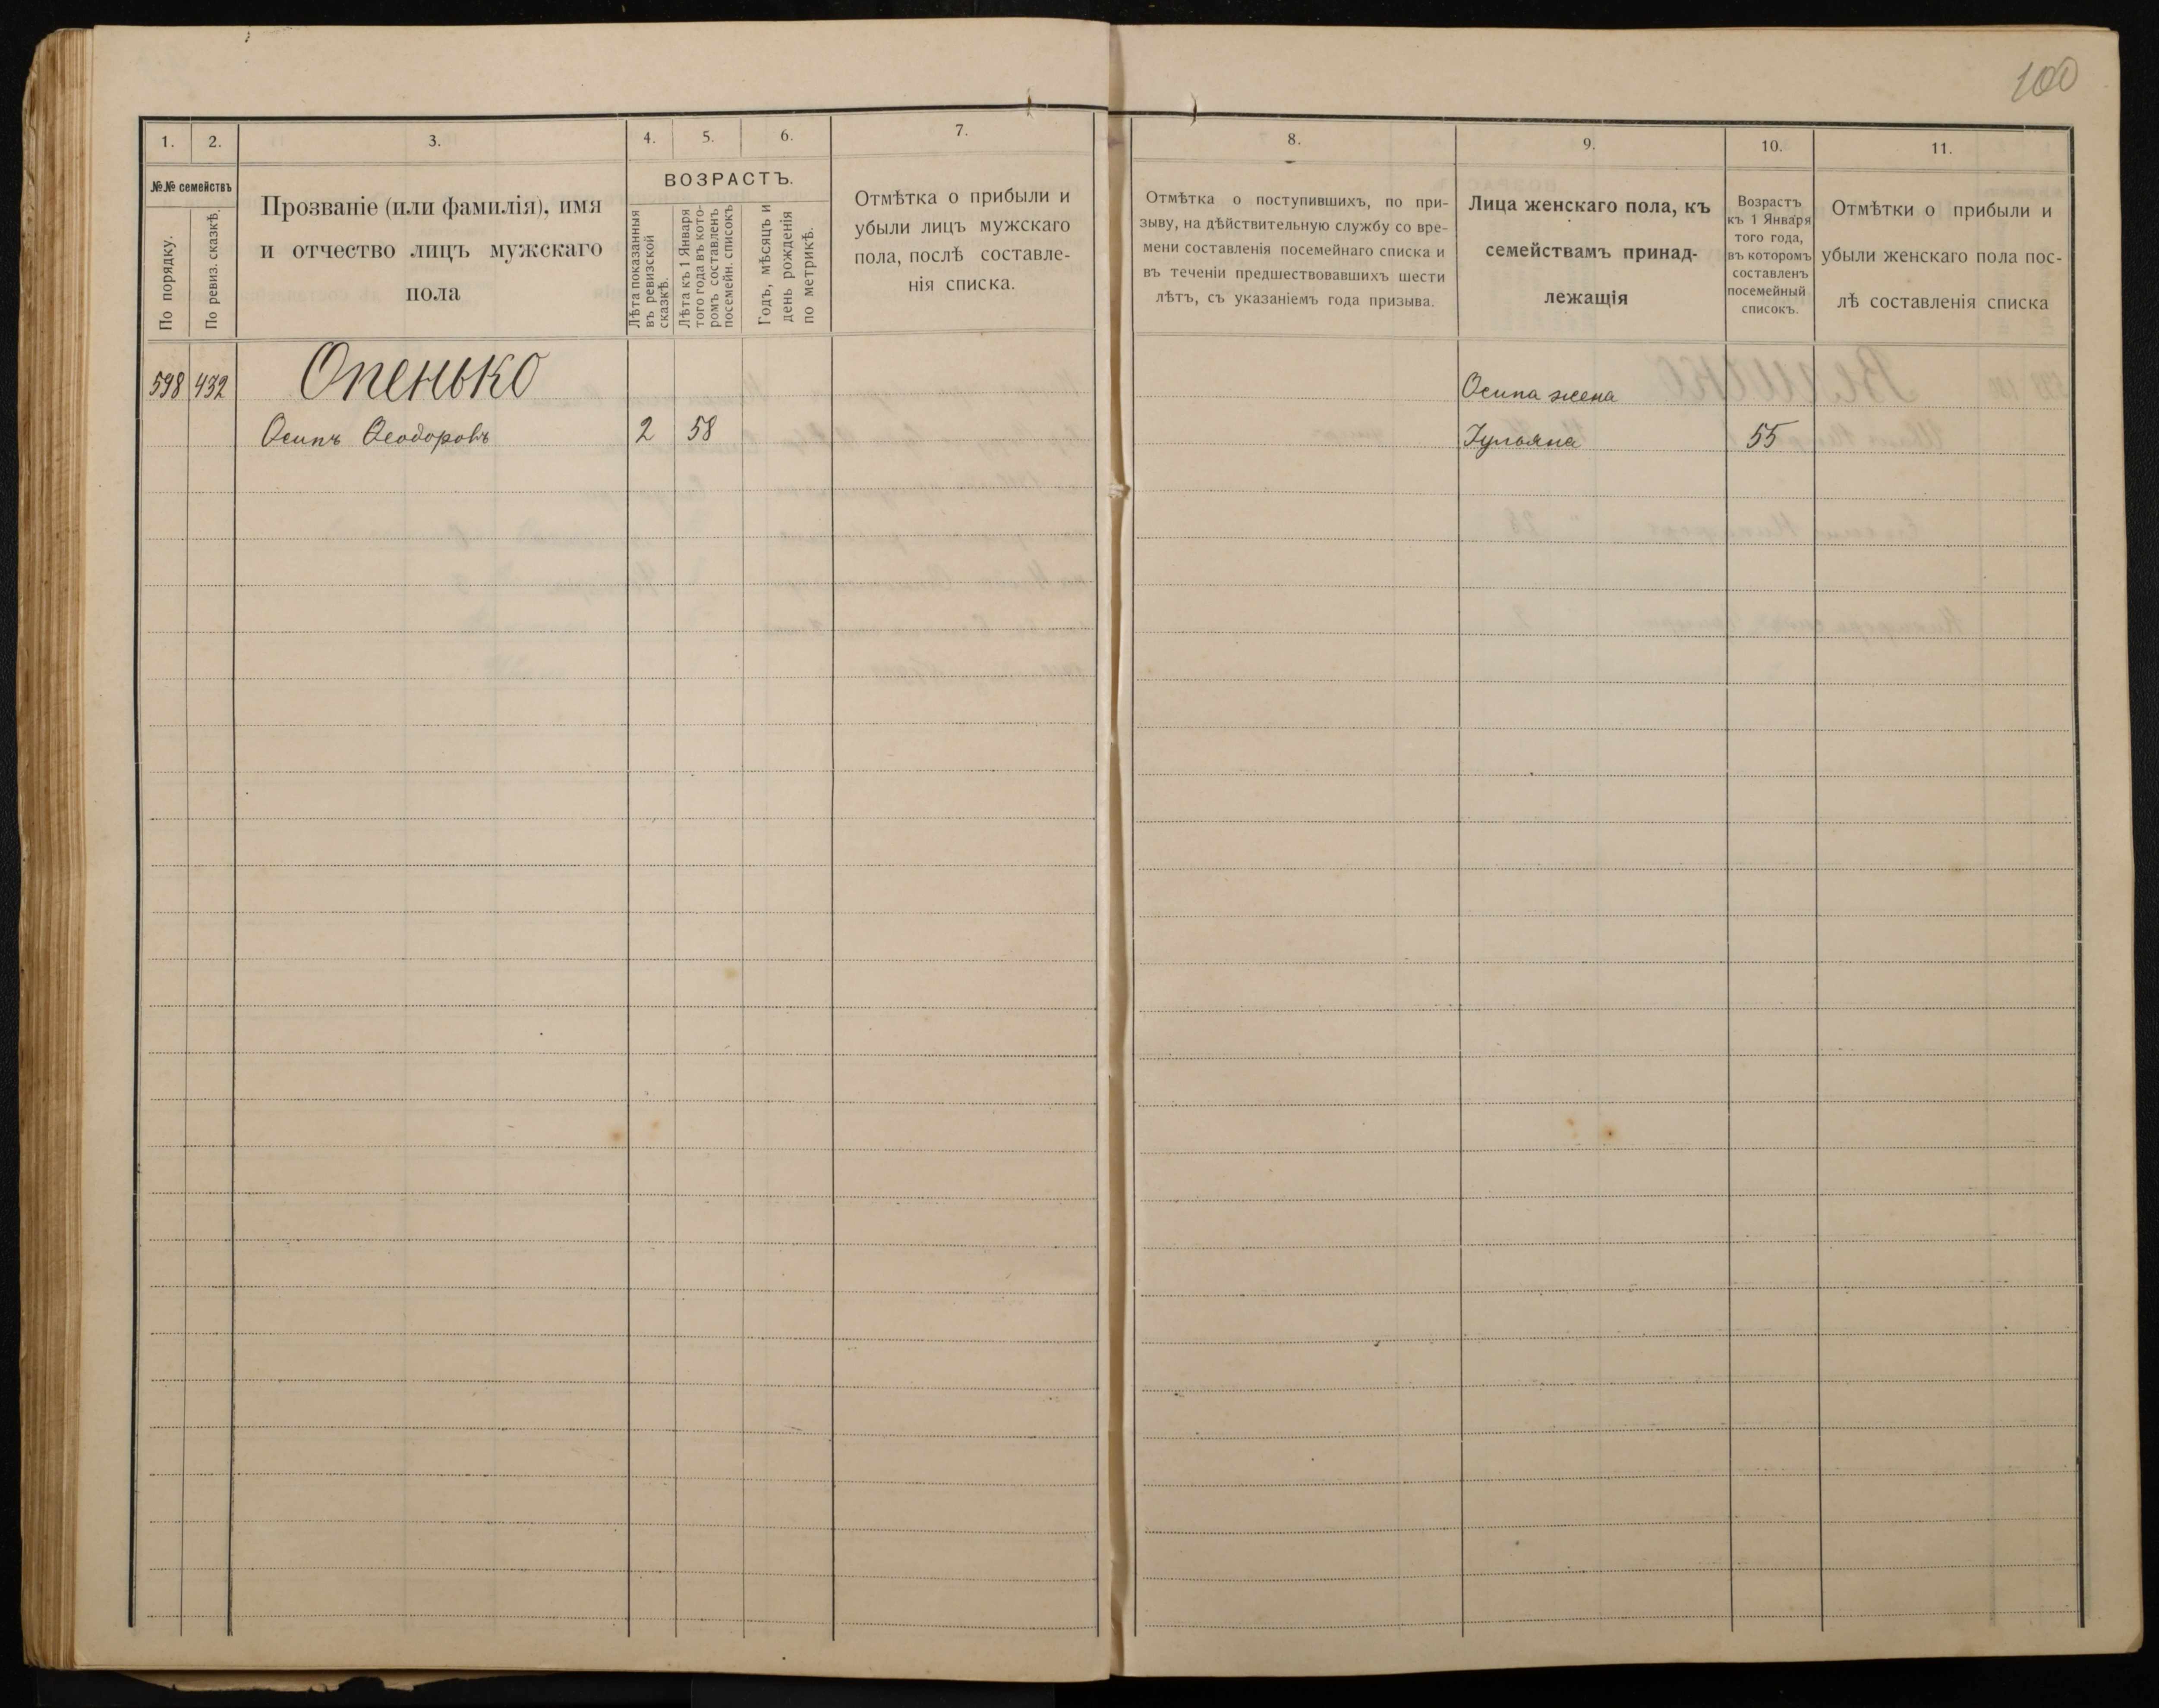 100
1.
2.
3.
4.
5.
6.
7.
8.
9.
10.
11.
№№ семействъ
По порядку.
По ревиз. сказкѣ.
Прозваніе (или фамилія), имя
и отчество лицъ мужскаго
пола
ВОЗРАСТЪ.
Лѣта показанныя
въ ревизской
сказкѣ.
Лѣта къ 1 Января
того года въ кото-
ромъ составленъ
посемейн. списокъ
Годъ, мѣсяцъ и
день рожденія
по метрикѣ.
Отмѣтка о прибыли и
убыли лицъ мужскаго
пола, послѣ составле-
нія списка.
Отмѣтка о поступившихъ, по при-
зыву, на дѣйствительную службу со вре-
мени составленія посемейнаго списка и
въ теченіи предшествовавшихъ шести
лѣтъ, съ указаніемъ года призыва.
Лица женскаго пола, къ
семействамъ принад-
лежащія
Возрастъ
къ 1 Января
того года,
въ которомъ
составленъ
посемейный
списокъ.
Отмѣтки о прибыли и
убыли женскаго пола пос-
лѣ составленія списка
598 432 Опенько
Осипа жена
Осипъ Ѳеодоровъ 2 58
Іульяна 55